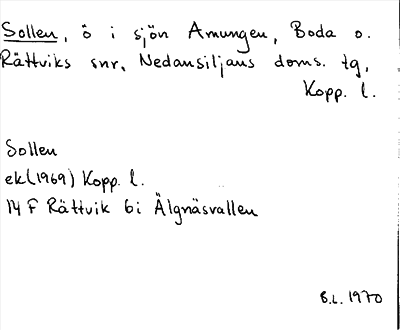 Sollen, ö i sjön Amungen, Boda o.
Rättviks snr, Nedansiljans doms. tg,
Kopp. l.
Sollen
ek (1969) Kopp. l.
14 F Rättvik 6i Älgnäsvallen
B.L. 1970